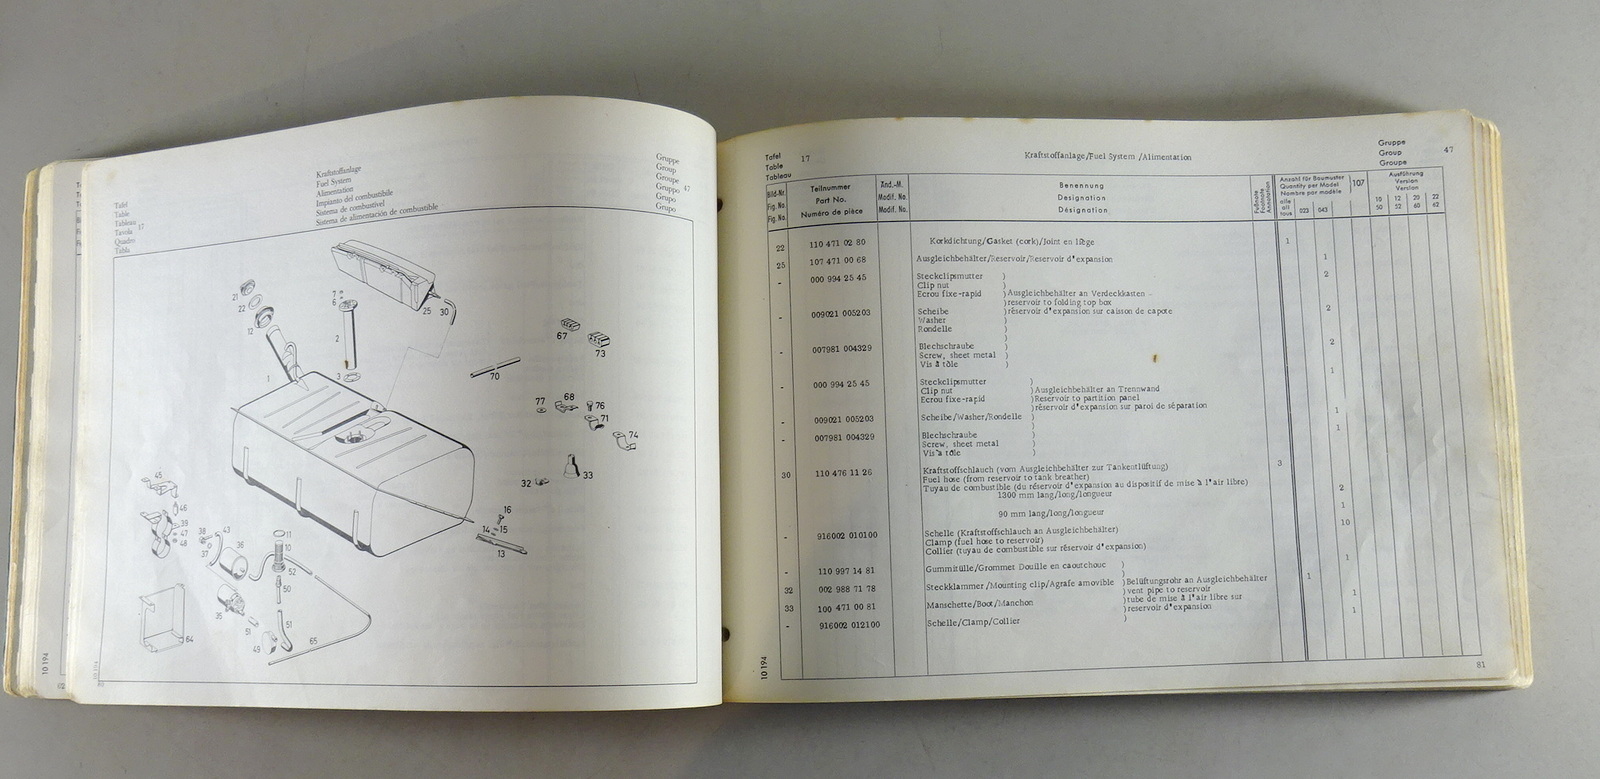 Tafel
Table
Tableau 17
Tavola
Quadro
Tabla
Kraftstoffanlage
Fuel System
Alimentation
Impianto del combustibile
Sistema de combustivel
Sistema de alimentación de combustible
Gruppe
Group
Groupe
Gruppo 47
Grupo
Grupo
21
22
12
7
6
2
3
1
25
30
67
73
70
77
68
76
71
74
32
33
16
14
15
13
45
46
39
47
48
38
37
43
36
11
10
52
50
35
51
51
49
65
64
10 194
10 194
Tafel
Table 17
Tableau
Kraftstoffanlage/Fuel System /Alimentation
Gruppe
Group 47
Groupe
Bild-Nr. Fig. No. Fig. No.
Teilnummer Part No. Numéro de pièce
Änd.-M. Modif. No. Modif. No.
Benennung Designation Désignation
Fußnote Footnote Annotation
Anzahl für Baumuster
Quantity per Model 107
Nombre par modèle
alle all tous 023 043
Ausführung Version Version
10 12 20 22
50 52 60 62
22 110 471 02 80 Korkdichtung/Gasket (cork)/Joint en liège 1
25 107 471 00 68 Ausgleichbehälter/Reservoir/Reservoir d'expansion 1
- 000 994 25 45 Steckclipsmutter ) 2
Clip nut )
Ecrou fixe-rapid )Ausgleichbehälter an Verdeckkasten -
)reservoir to folding top box
- 009021 005203 Scheibe )réservoir d'expansion sur caisson de capote 2
Washer )
Rondelle )
)
- 007981 004329 Blechschraube ) 2
Screw, sheet metal )
Vis à tôle )
- 000 994 25 45 Steckclipsmutter ) 1
Clip nut )Ausgleichbehälter an Trennwand
Ecrou fixe-rapid )Reservoir to partition panel
)réservoir d'expansion sur paroi de séparation
- 009021 005203 Scheibe/Washer/Rondelle ) 1
)
- 007981 004329 Blechschraube ) 1
Screw, sheet metal )
Vis à tôle )
30 110 476 11 26 Kraftstoffschlauch (vom Ausgleichbehälter zur Tankentlüftung) 3
Fuel hose (from reservoir to tank breather)
Tuyau de combustible (du réservoir d'expansion au dispositif de mise à l'air libre)
1300 mm lang/long/longueur 2
90 mm lang/long/longueur 1
- 916002 010100 Schelle (Kraftstoffschlauch an Ausgleichbehälter) 10
Clamp (fuel hose to reservoir)
Collier (tuyau de combustible sur réservoir d'expansion)
- 110 997 14 81 Gummitülle/Grommet Douille en caoutchouc ) 1
)
32 002 988 71 78 Steckklammer/Mounting clip/Agrafe amovible )Belüftungsrohr an Ausgleichbehälter 1
)vent pipe to reservoir
33 100 471 00 81 Manschette/Boot/Manchon )tube de mise à l'air libre sur 1
)réservoir d'expansion
- 916002 012100 Schelle/Clamp/Collier ) 1
10 194
81